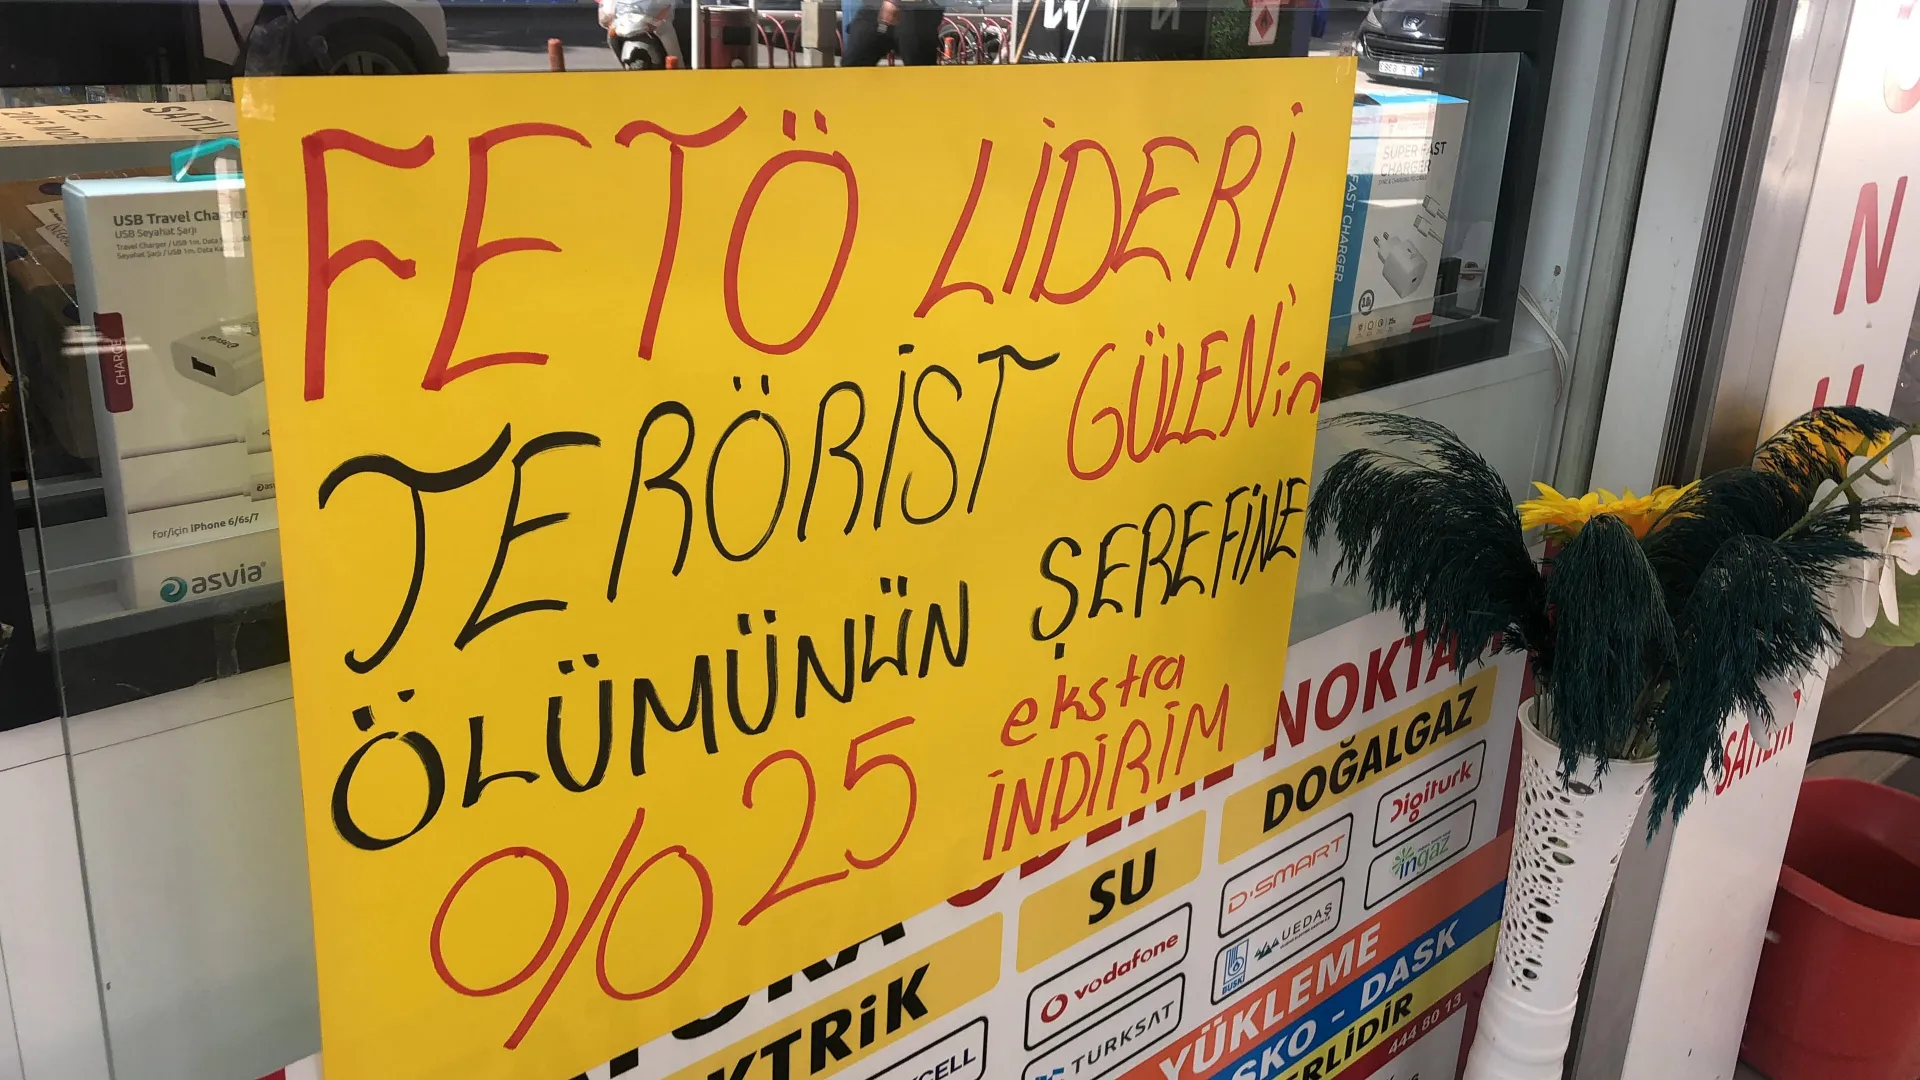 FETÖ LİDERİ
TERÖRİST GÜLEN'in
ÖLÜMÜNÜN ŞEREFİNE
%25 ekstra
İNDİRİM
USB Travel Charger
USB Seyahat Şarjı
CHARGE
for/için iPhone 6/6s/7
asvia
SUPER FAST
CHARGER
FAST CHARGER
NOKTA
DOĞALGAZ
SU
DİGİTURK
D-SMART
ingaz
UEDAŞ
BUSKİ
vodafone
TÜRKSAT
YÜKLEME
DASK
444 80 13
SATILIR
N